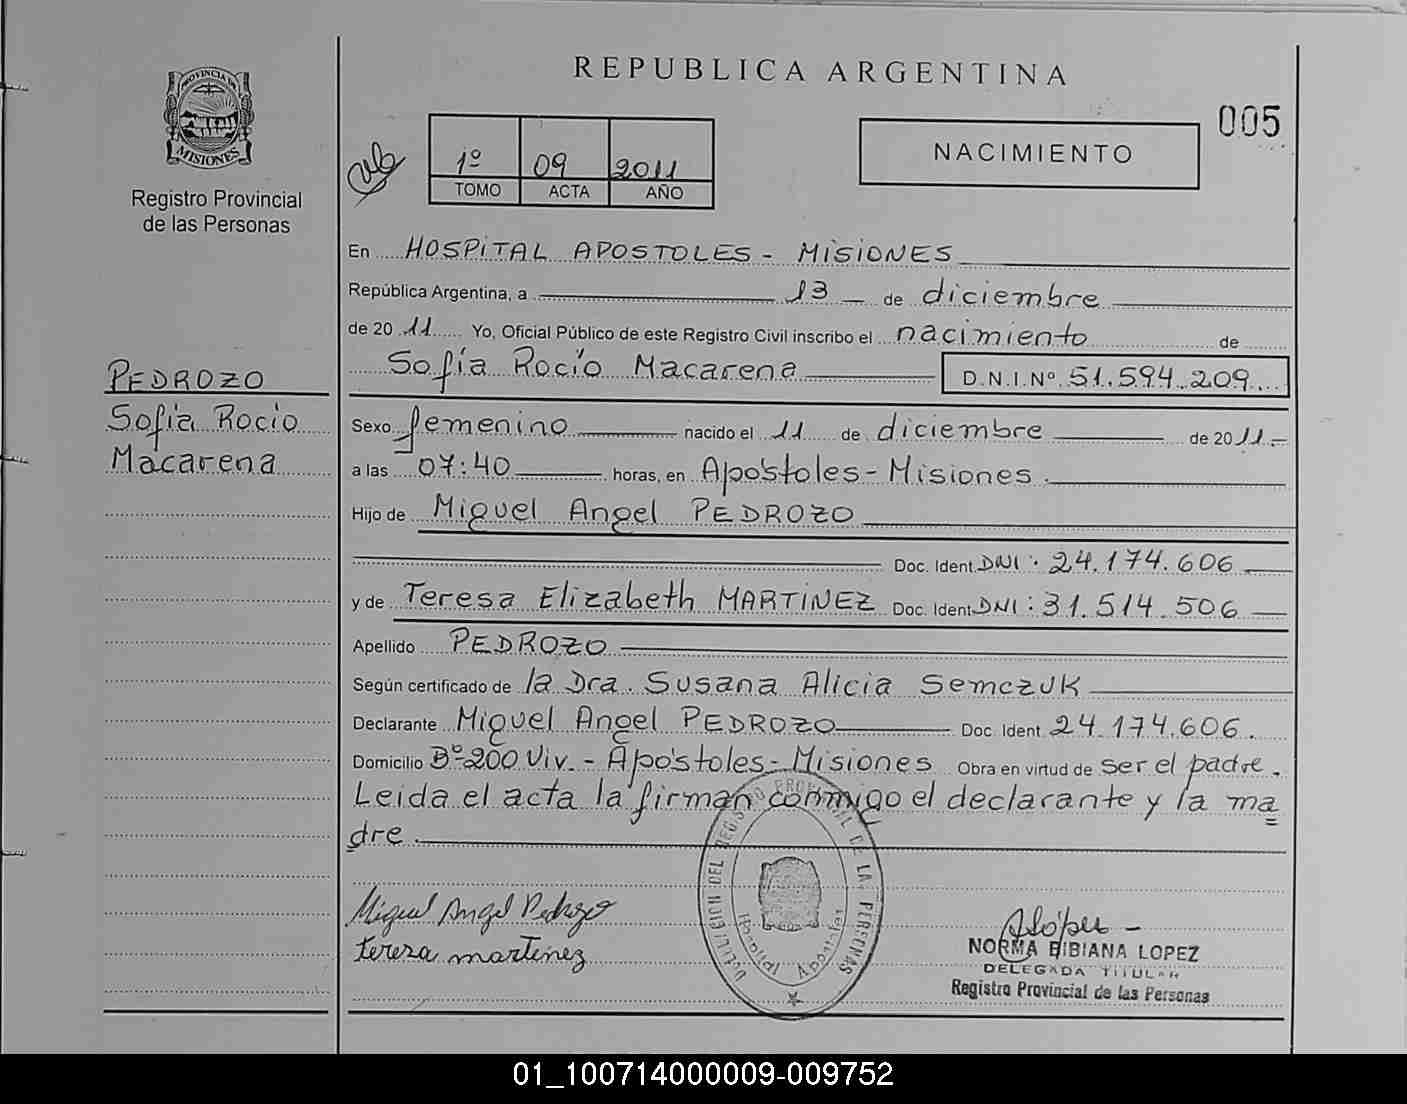 REPUBLICA ARGENTINA
005
PROVINCIA DE
MISIONES
Registro Provincial
de las Personas
1º 09 2011
TOMO ACTA AÑO
NACIMIENTO
En HOSPITAL APOSTOLES - MISIONES
República Argentina, a 13 de diciembre
de 2011 Yo, Oficial Público de este Registro Civil inscribo el nacimiento de
Sofía Rocío Macarena D.N.I.Nº 51.594.209
PEDROZO
Sofía Rocío
Macarena
Sexo femenino nacido el 11 de diciembre de 2011.-
a las 07:40 horas, en Apóstoles - Misiones.
Hijo de Miguel Angel PEDROZO
Doc. Ident. DNI: 24.174.606
y de Teresa Elizabeth MARTINEZ Doc. Ident. DNI: 31.514.506
Apellido PEDROZO
Según certificado de la Dra. Susana Alicia Semczuk
Declarante Miguel Angel PEDROZO Doc. Ident. 24.174.606.
Domicilio Bº 200 Viv. - Apóstoles - Misiones Obra en virtud de ser el padre.
Leida el acta la firman conmigo el declarante y la ma
dre.
Miguel Angel Pedrozo
teresa martinez
DEL REGISTRO PROVINCIAL DE LAS PERSONAS
Hospital Apostoles
NORMA BIBIANA LOPEZ
DELEGADA TITULAR
Registro Provincial de las Personas
01_100714000009-009752